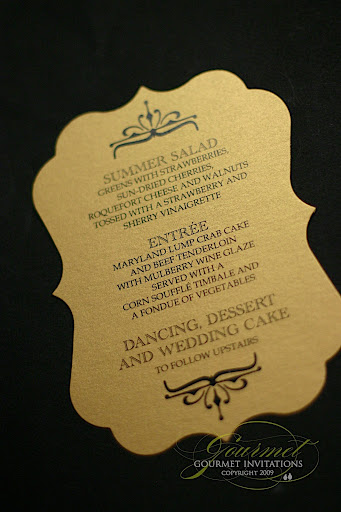 SUMMER SALAD
GREENS WITH STRAWBERRIES,
SUN-DRIED CHERRIES,
ROQUEFORT CHEESE AND WALNUTS
TOSSED WITH A STRAWBERRY AND
SHERRY VINAIGRETTE
ENTRÉE
MARYLAND LUMP CRAB CAKE
AND BEEF TENDERLOIN
WITH MULBERRY WINE GLAZE
SERVED WITH A
CORN SOUFFLÉ TIMBALE AND
A FONDUE OF VEGETABLES
DANCING, DESSERT
AND WEDDING CAKE
TO FOLLOW UPSTAIRS
Gourmet
GOURMET INVITATIONS
COPYRIGHT 2009